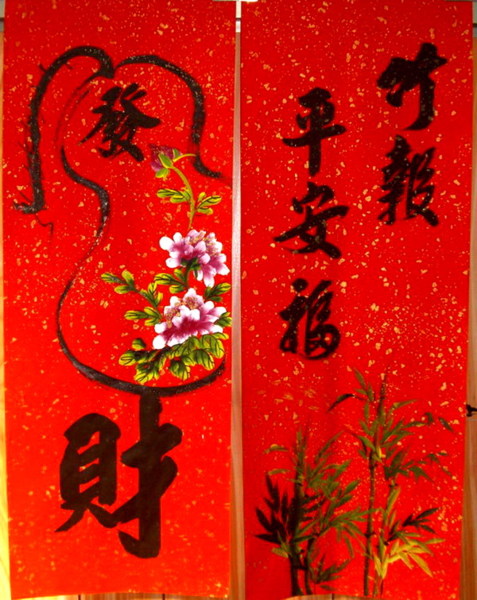 竹報
平安福
發財